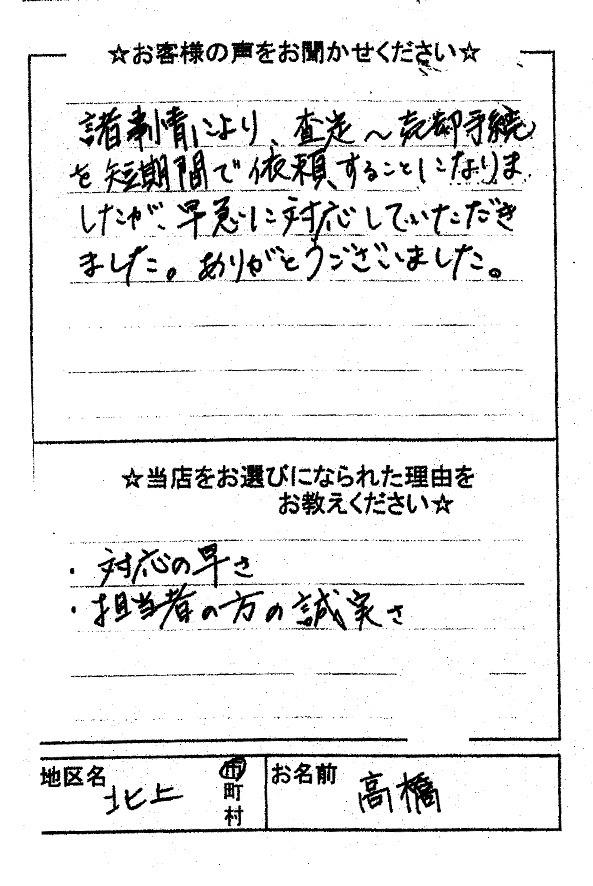 ☆お客様の声をお聞かせください☆
諸事情により、査定～売却手続
を短期間で依頼することになりま
したが、早急に対応していただき
ました。ありがとうございました。
☆当店をお選びになられた理由を
お教えください☆
・対応の早さ
・担当者の方の誠実さ
地区名 北上 市 町 村
お名前 高橋